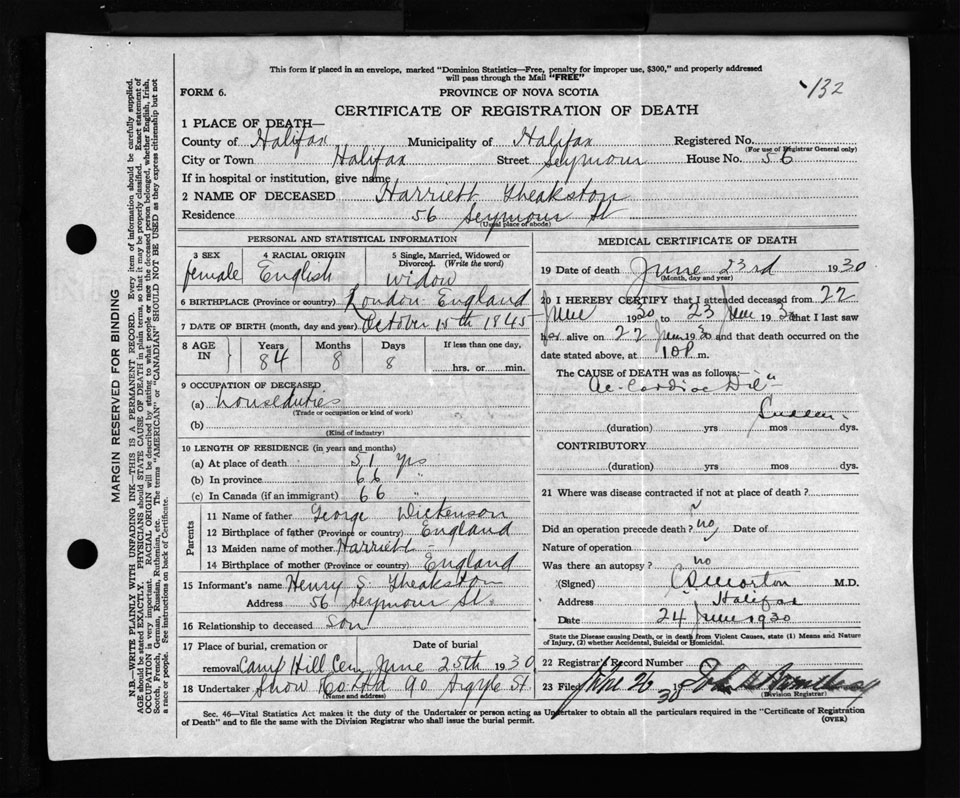 This form if placed in an envelope, marked "Dominion Statistics—Free, penalty for improper use, $300," and properly addressed
will pass through the Mail "FREE"
132
FORM 6. PROVINCE OF NOVA SCOTIA
CERTIFICATE OF REGISTRATION OF DEATH
1 PLACE OF DEATH—
County of Halifax Municipality of Halifax Registered No.
(For use of Registrar General only)
City or Town Halifax Street Seymour House No. 56
If in hospital or institution, give name
2 NAME OF DECEASED Harriett Theakston
Residence 56 Seymour St
(Usual place of abode)
PERSONAL AND STATISTICAL INFORMATION
3 SEX 4 RACIAL ORIGIN 5 Single, Married, Widowed or
Divorced. (Write the word)
female English widow
6 BIRTHPLACE (Province or country) London England
7 DATE OF BIRTH (month, day and year) October 15th 1845
8 AGE IN Years Months Days If less than one day,
84 8 8 hrs. or min.
9 OCCUPATION OF DECEASED
(a) house duties
(Trade or occupation or kind of work)
(b)
(Kind of industry)
10 LENGTH OF RESIDENCE (in years and months)
(a) At place of death 51 yrs
(b) In province 66 "
(c) In Canada (if an immigrant) 66 "
Parents
11 Name of father George Dickenson
12 Birthplace of father (Province or country) England
13 Maiden name of mother Harriett
14 Birthplace of mother (Province or country) England
15 Informant's name Henry S. Theakston
Address 56 Seymour St.
16 Relationship to deceased son
17 Place of burial, cremation or Date of burial
removal Camp Hill Cem June 25th 1930
18 Undertaker Snow & Co Ltd 90 Argyle St.
(Name and address)
MEDICAL CERTIFICATE OF DEATH
19 Date of death June 23rd 1930
(Month, day and year)
20 I HEREBY CERTIFY that I attended deceased from 22
June 1930 to 23 June 1930 that I last saw
her alive on 22 June 1930 and that death occurred on the
date stated above, at 10 P. m.
The CAUSE of DEATH was as follows:
Ac. Cardiac Dil"
Sudden
(duration) yrs mos dys.
CONTRIBUTORY
(duration) yrs mos dys.
21 Where was disease contracted if not at place of death?
Did an operation precede death? no Date of
Nature of operation
Was there an autopsy? no
(Signed) Morton M.D.
Address Halifax
Date 24 June 1930
State the Disease causing Death, or in death from Violent Causes, state (1) Means and Nature
of Injury, (2) whether Accidental, Suicidal or Homicidal.
22 Registrar's Record Number
23 Filed June 26 1930 John
(Division Registrar)
Sec. 46—Vital Statistics Act makes it the duty of the Undertaker or person acting as Undertaker to obtain all the particulars required in the "Certificate of Registration
of Death" and to file the same with the Division Registrar who shall issue the burial permit. (OVER)
MARGIN RESERVED FOR BINDING
N.B.—WRITE PLAINLY WITH UNFADING INK—THIS IS A PERMANENT RECORD. Every item of information should be carefully supplied.
AGE should be stated EXACTLY. PHYSICIANS should STATE CAUSE OF DEATH in plain terms, so that it may be properly classified. Exact statement of
OCCUPATION is very important. RACIAL ORIGIN will be described by stating to what people or race the deceased person belonged, whether English, Irish,
Scotch, French, German, Russian, Ruthenian, etc. The terms "AMERICAN" or "CANADIAN" SHOULD NOT BE USED as they express citizenship but not
a race or people. See instructions on back of Certificate.